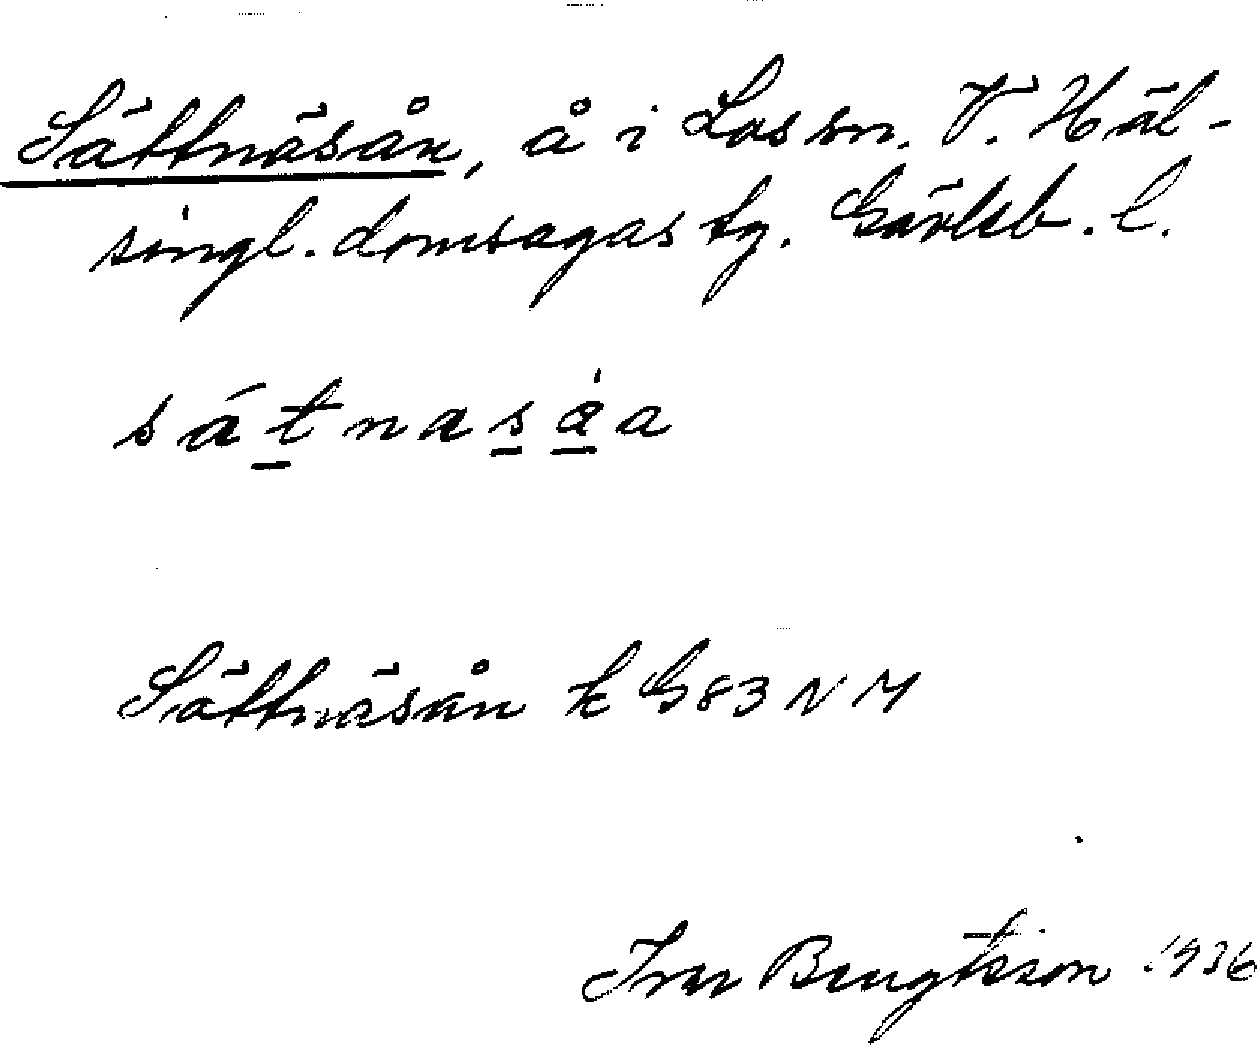 Sättnäsån, å i Los sn. V. Häl-
singl. domsagas tg. Gävleb. l.
sátnasåa
Sättnäsån k G83 NM
Ivar Bengtsson 1936